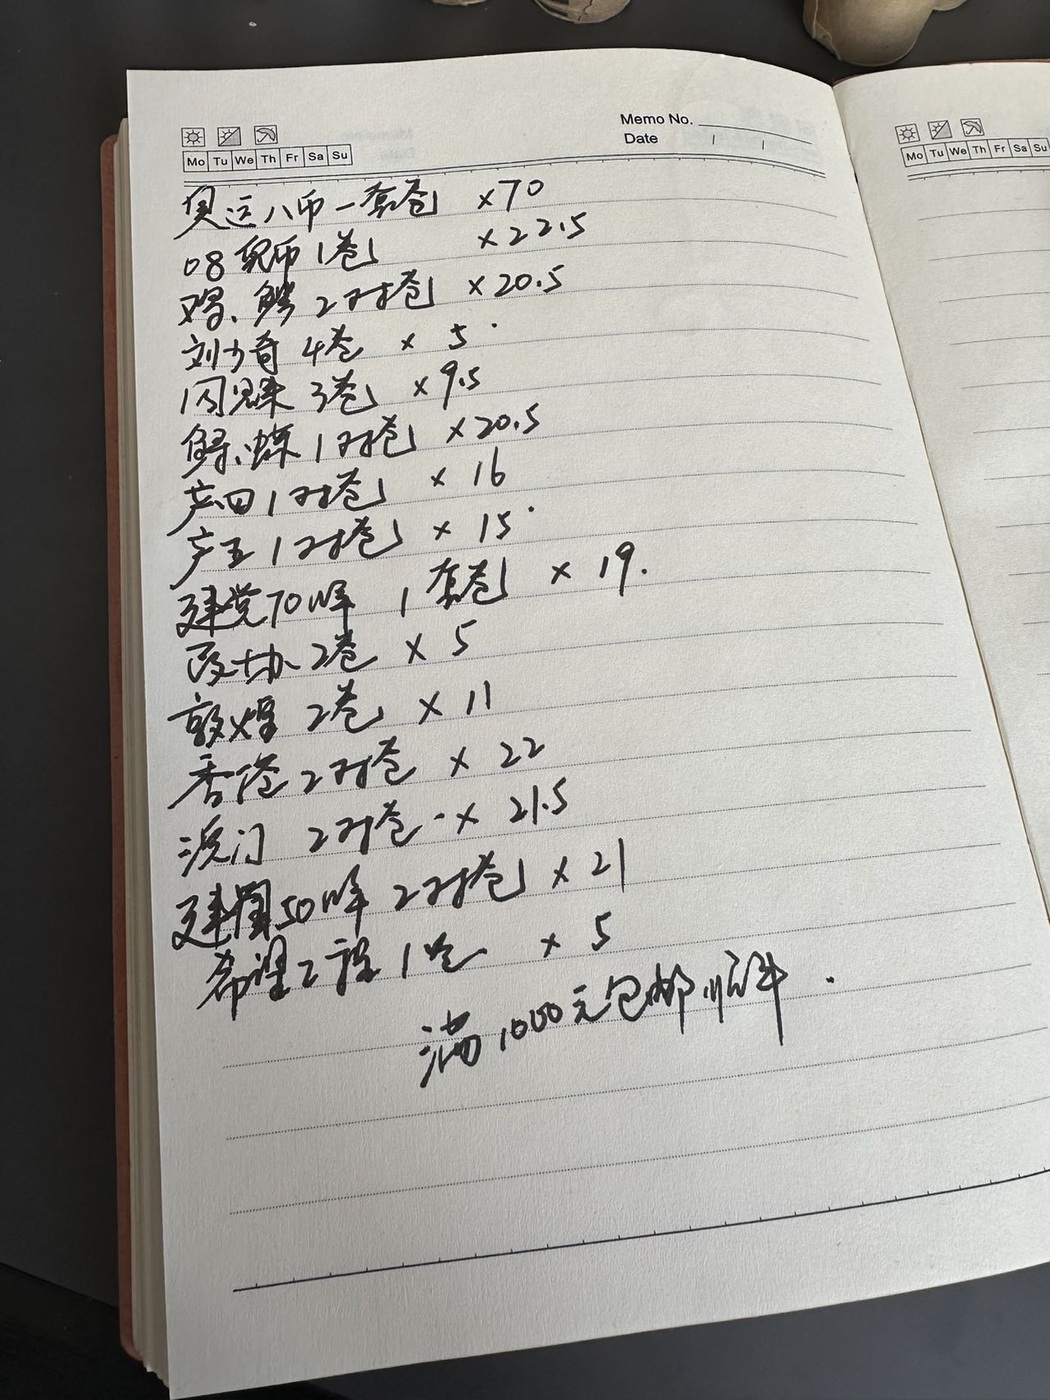 Memo No.
Date / /
Mo Tu We Th Fr Sa Su
Mo Tu We Th Fr Sa Su
奥运八币一套卷 ×70
08奥币1卷 ×22.5
2对卷 ×20.5
刘少奇 4卷 × 5
3卷 ×9.5
1对卷 ×20.5
1对卷 × 16
1对卷 × 15
建党70周年 1套卷 × 19.
政协 2卷 × 5
敦煌 2卷 × 11
香港 2对卷 × 22
澳门 2对卷 × 21.5
建国50周年 2对卷 × 21
希望工程 1卷 × 5
满1000元包邮顺丰.